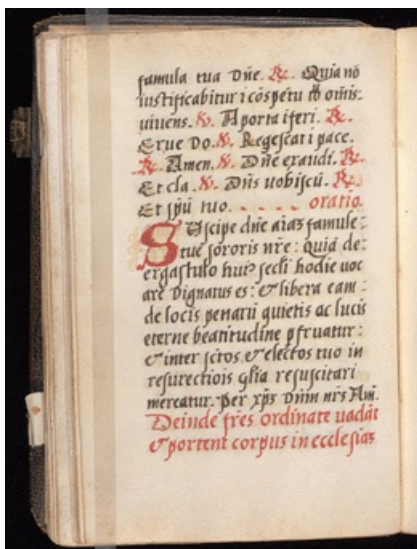 famula tua dñe. ℟. Quia nõ
iustificabitur i cõspetu tõ om̃is
uiuens. ℣. A porta iferi. ℟.
Erue Do. ℣. Regescat i pace.
℟. Amen. ℣. Dñe exaudi. ℟.
Et cla. ℣. Dñs uobiscũ. ℟.
Et sp̃ũ tuo. . . . . . oratio.
SUscipe dñe aĩaz famule
tue sororis nr̃e : quia de
ergastulo hui⁹ secl̃i hodie uoc
are dignatus es : & libera eam
de locis penarũ quietis ac lucis
eterne beatitudine ꝑfruatur :
& inter sc̃tos & electos tuo in
resurectiõis gl̃ia resuscitari
mereatur. Per xp̃z dñm nr̃z Am̃.
Deinde fr̃es ordinate uadãt
& portent corpus in ecclesiaz